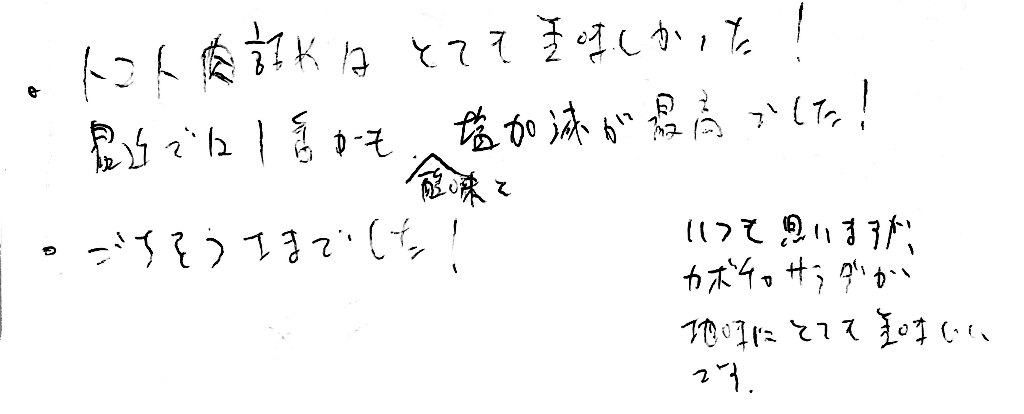 ・トマト肉詰めは とても美味しかった！
最近では1番かも. 塩加減が最高でした！
酸味と
・ごちそうさまでした！
いつも思いますが、
カボチャサラダが
地味にとても美味しい
です.